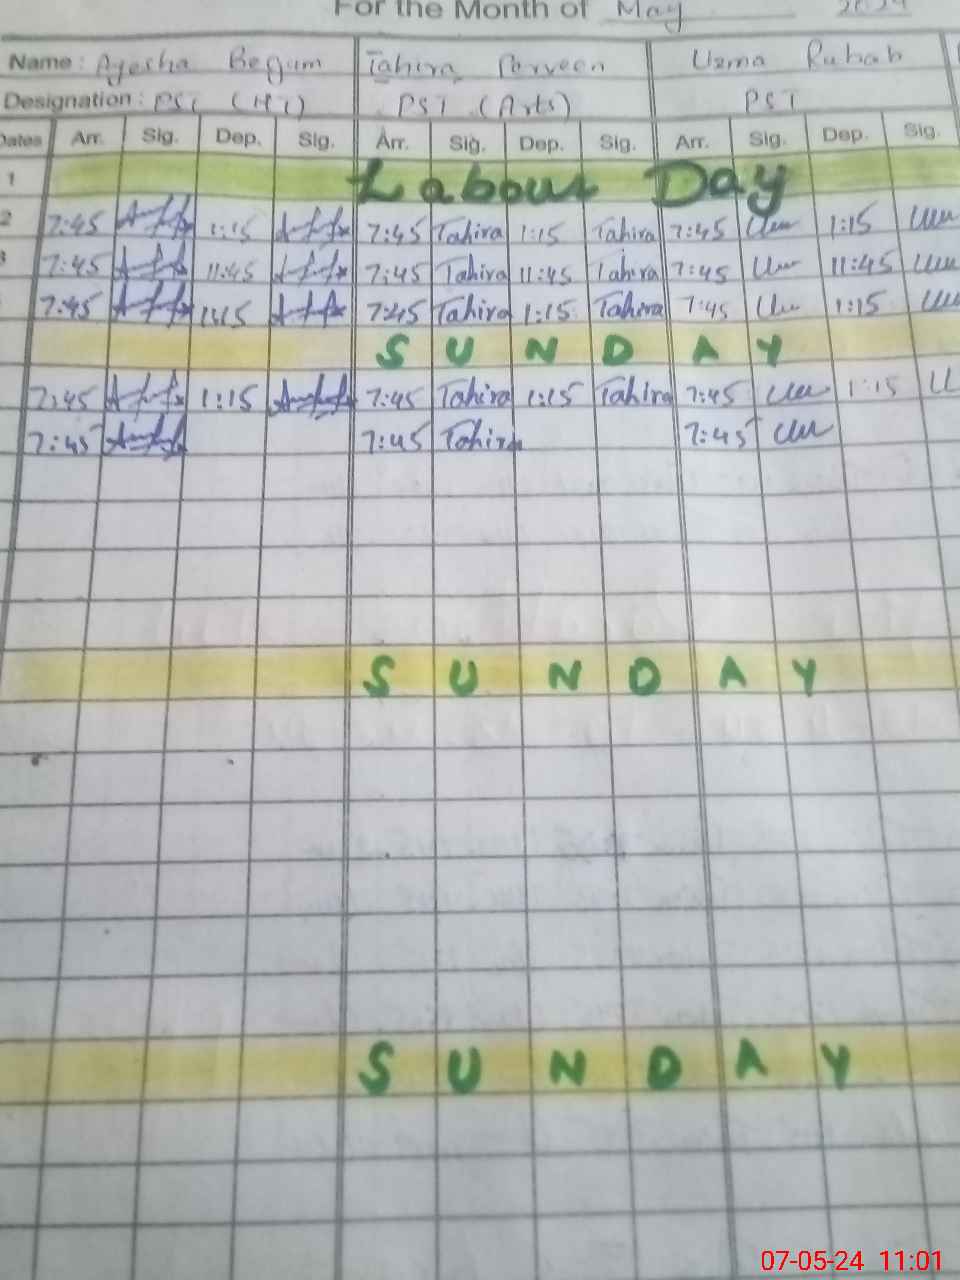 For the Month of May 2024
Name: Ayesha Begum Tahira Parveen Uzma Rubab
Designation: PST (HT) PST (Arts) PST
Dates Arr. Sig. Dep. Sig. Arr. Sig. Dep. Sig. Arr. Sig. Dep. Sig.
1 Labour Day
2 7:45 1:15 7:45 Tahira 1:15 Tahira 7:45 1:15
3 7:45 11:45 7:45 Tahira 11:45 Tahira 7:45 11:45
7:45 1:15 7:45 Tahira 1:15 Tahira 7:45 1:15
SUNDAY
7:45 1:15 7:45 Tahira 1:15 Tahira 7:45 1:15
7:45 7:45 Tahira 7:45
SUNDAY
SUNDAY
07-05-24 11:01